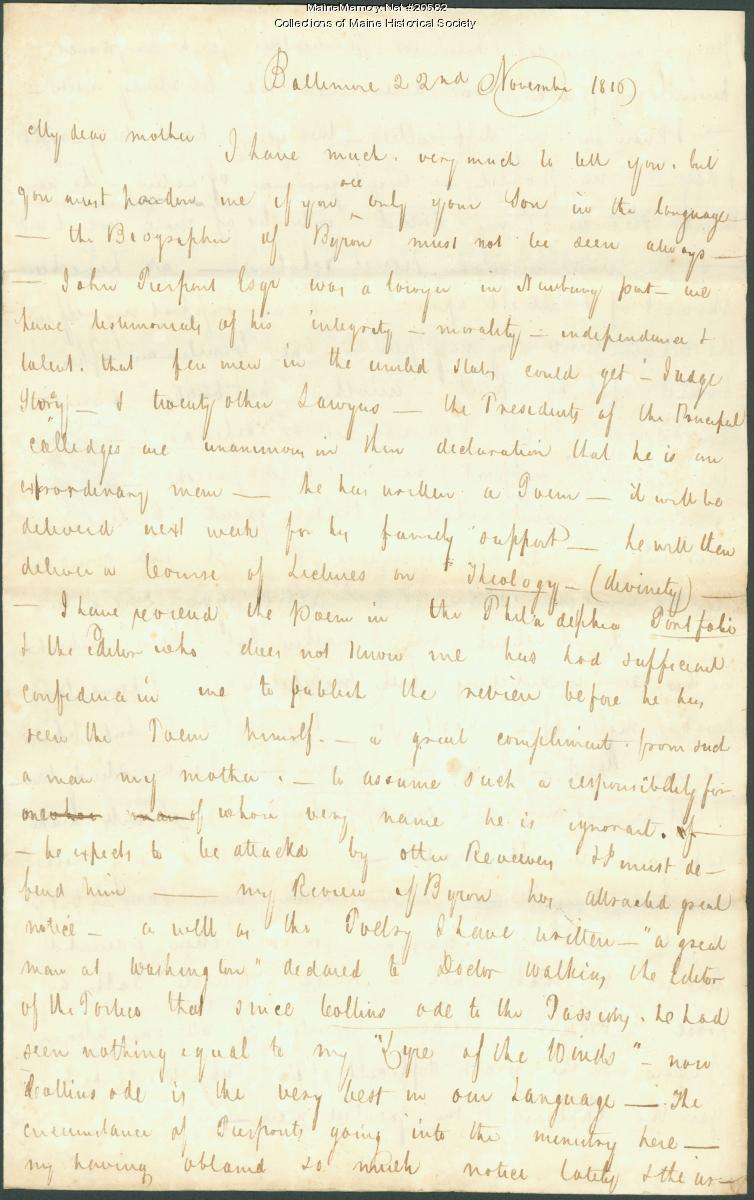 MaineMemory.Net #20582
Collections of Maine Historical Society
Baltimore 22nd November 1816
My dear mother
I have much. very much to tell you. but
you must pardon me if you see only your Son in the language
— the Biographer of Byron must not be seen always —
— John Pierpont Esqr was a lawyer in Newbury port — we
have testimonials of his integrity — morality — independence &
talent. that few men in the united states could get — Judge
Story — & twenty other Lawyers — the Presidents of the Principal
Colledges are unanimous in their declaration that he is an
extraordinary man — he has written a Poem — it will be
deliverd next week for his family support — he will then
deliver a Course of Lectures on Theology — (divinity) —
— I have reviewd the poem in the Philadelphia Portfolio
& the Editor who does not know me has had sufficient
confidence in me to publish the review before he has
seen the Poem himself. — a great compliment. from such
a man my mother. — to assume such a responsibility for
one of whose very name he is ignorant.
— he expects to be attackd by other Reviewers & I must de-
fend him — my Review of Byron has attracted great
notice — as well as the Poetry I have written — "a great
man at Washington" declared to Doctor Watkins the Editor
of the Portico that since Collins ode to the Passions. he had
seen nothing equal to my "Lyre of the Winds" — now
Collins ode is the very best in our Language — The
circumstance of Pierponts going into the ministry here —
my having obtaind so much notice lately & the us-